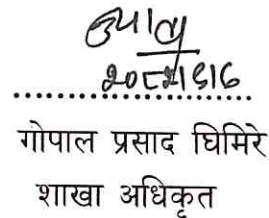 ..............................
गोपाल प्रसाद घिमिरे
शाखा अधिकृत